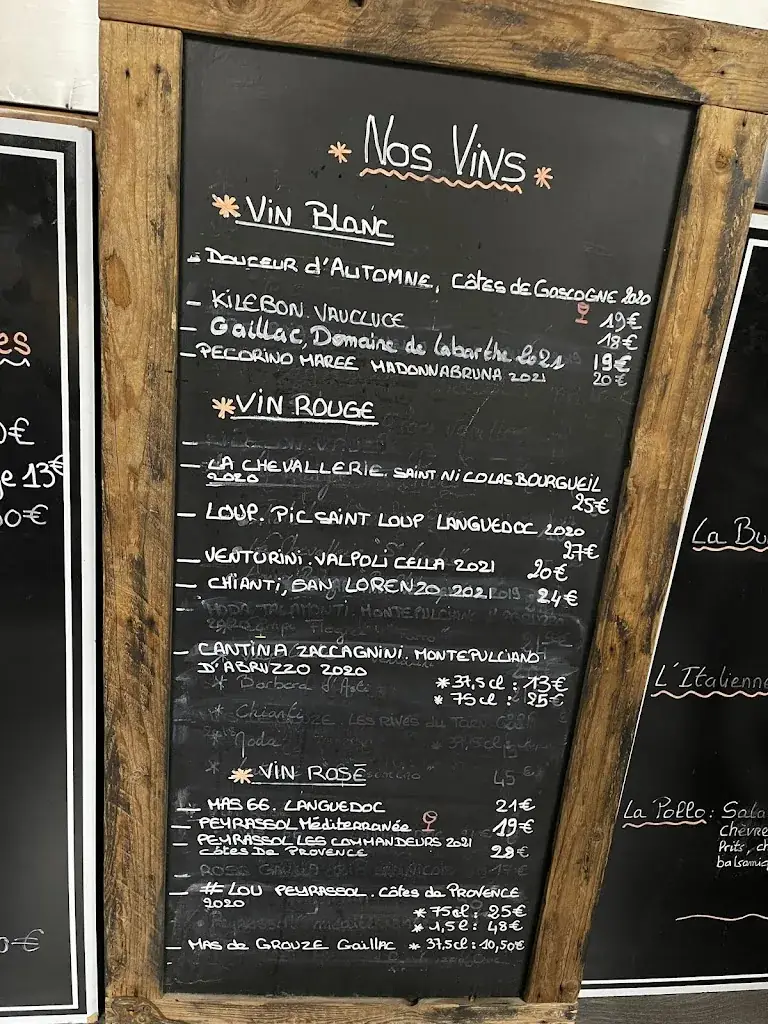 Nos Vins
Vin Blanc
- Douceur d'Automne, Côtes de Gascogne 2020
19€
- Kilebon. Vaucluce
18€
- Gaillac, Domaine de Labarthe 2021 19€
- Pecorino Maree Madonnabruna 2021 20€
Vin Rouge
-
- La Chevallerie. Saint Nicolas Bourgueil
2020
25€
- Loup. Pic Saint Loup Languedoc 2020
27€
- Venturini. Valpolicella 2021 20€
- Chianti, San Lorenzo, 2021 24€
-
- Cantina Zaccagnini. Montepulciano
d'Abruzzo 2020 * 37,5cl : 13€
* 75cl : 25€
* Barbera d'Asti
* Chianti
Vin Rosé
- Mas 66. Languedoc 21€
- Peyrassol Méditerranée 19€
- Peyrassol Les Commandeurs 2021
Côtes De Provence 28€
- # Lou Peyrassol. Côtes de Provence
2020
* 75cl : 25€
* 1,5l : 48€
- Mas de Grouze Gaillac * 37,5cl : 10,50€
es
€
e 13€
0€
€
La Bu
L'Italienne
La Pollo : Sala
chèvre
Prits, ch
balsamiq